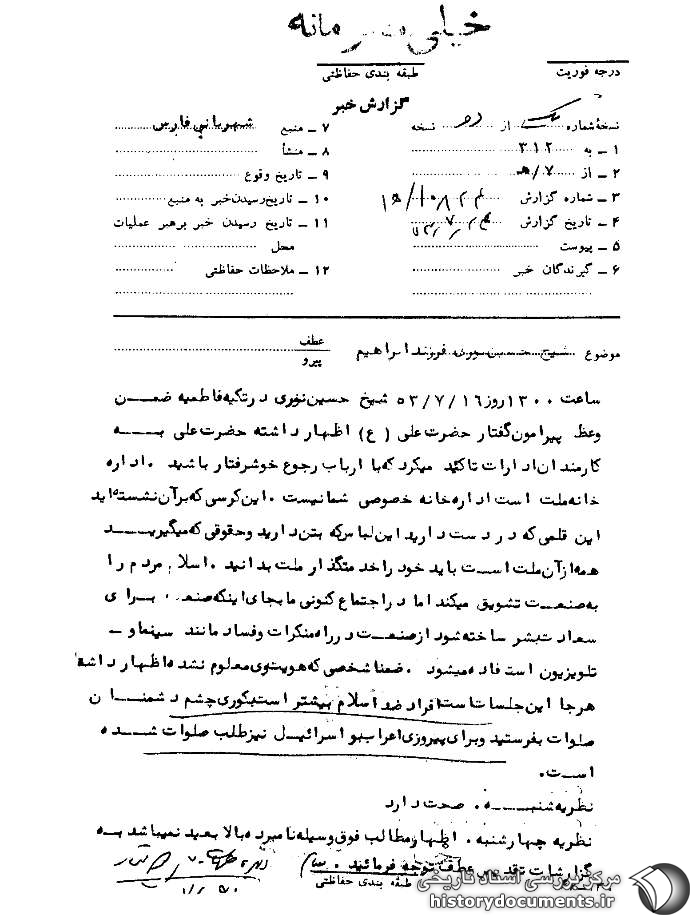 خیلی محرمانه
درجه فوریت
طبقه بندی حفاظتی
گزارش خبر
نسخهٔ شماره یک از دو نسخه
۱ ـ به ۳۱۲
۲ ـ از ۷/هـ
۳ ـ شماره گزارش
۴ ـ تاریخ گزارش
۵ ـ پیوست
۶ ـ گیرندگان خبر
۷ ـ منبع شهربانی فارس
۸ ـ منشأ
۹ ـ تاریخ وقوع
۱۰ ـ تاریخ رسیدن خبر به منبع
۱۱ ـ تاریخ رسیدن خبر برهبر عملیات
محل
۱۲ ـ ملاحظات حفاظتی
موضوع شیخ حسین نوری فرزند ابراهیم
عطف
پیرو
ساعت ۱۳۰۰ روز ۵۳/۷/۱۶ شیخ حسین نوری در تکیه فاطمیه ضمن
وعظ پیرامون گفتار حضرت علی (ع) اظهار داشته حضرت علی به
کارمندان ادارات تاکید میکرد که با ارباب رجوع خوشرفتار باشید . اداره
خانه ملت است اداره خانه خصوصی شما نیست . این کرسی که برآن نشسته اید
این قلمی که در دست دارید این لباس که بتن دارید و حقوقی که میگیرید
همه از آن ملت است باید خود را خدمتگذار ملت بدانید . اسلام مردم را
به صنعت تشویق میکند اما در اجتماع کنونی ما بجای اینکه صنعت برای
سعادت بشر ساخته شود از صنعت در راه منکرات و فساد مانند سینما و ـ
تلویزیون استفاده میشود . ضمنا شخصی که هویت وی معلوم نشده اظهار داشته
هرجا این جلسات است افراد ضد اسلام بیشتر است بکوری چشم دشمنان
صلوات بفرستید و برای پیروزی اعراب بر اسرائیل نیز طلب صلوات شده
است .
نظریه شنبه . صحت دارد
نظریه چهارشنبه . اظهار مطالب فوق وسیله نامبرده بالا بعید نمیباشد به
گزارشات تقدیمی عطف توجه فرمائید .
طبقه بندی حفاظتی
مرکز بررسی اسناد تاریخی
historydocuments.ir